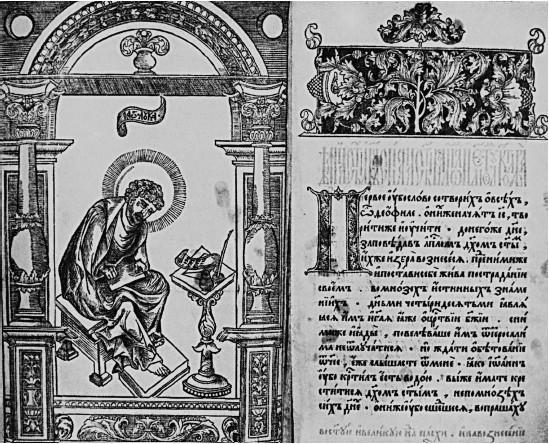 лꙋка
Первое ᲂубо слово сотворихъ ѡ всѣхъ,
ѽ Ѳеѡфиле. ѡ нихже начатъ і҃с, тво
рити же и ᲂучити. до негоже дн҃е,
заповѣдавъ ап҃лѡмъ дх҃омъ ст҃ы,
ихже избра вознесесѧ. пред нимиже
и постави себе жива по страданїи
своемъ. во мнозѣхъ истинныхъ знаме
нїихъ. дньми четыридесѧтьми ꙗвлѧ
ѧсѧ имъ, и гл҃ѧ ꙗже ѡ цр҃твїи бж҃їи. с ни
миже и ꙗды, повелѣваше имъ ѿ іерⷭ҇ли
ма не ѿлучатисѧ. но ждати ѡбѣтованїе
ѿчее, еже слышасте ѿ мене. ꙗко іѡаннъ
ᲂубо крⷭ҇тилъ есть водою. вы же имате кре
ститисѧ дх҃омъ ст҃ымъ, не по мнозѣхъ
сихъ дн҃е. ѡни же ᲂубо сшедшесѧ, впрашаху